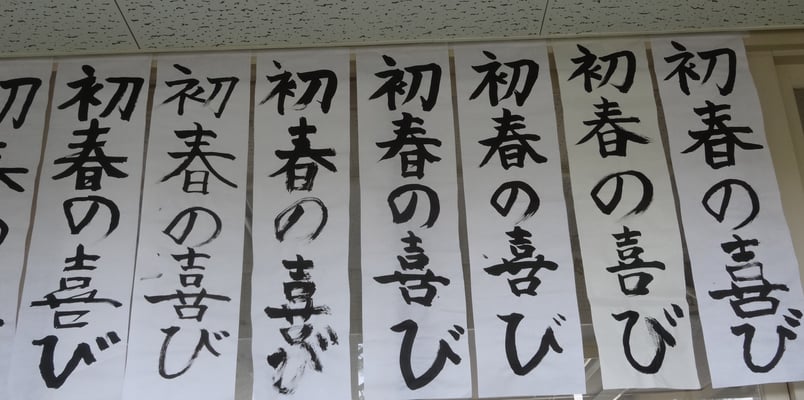 初春の喜び
初春の喜び
初春の喜び
初春の喜び
初春の喜び
初春の喜び
初春の喜び
初